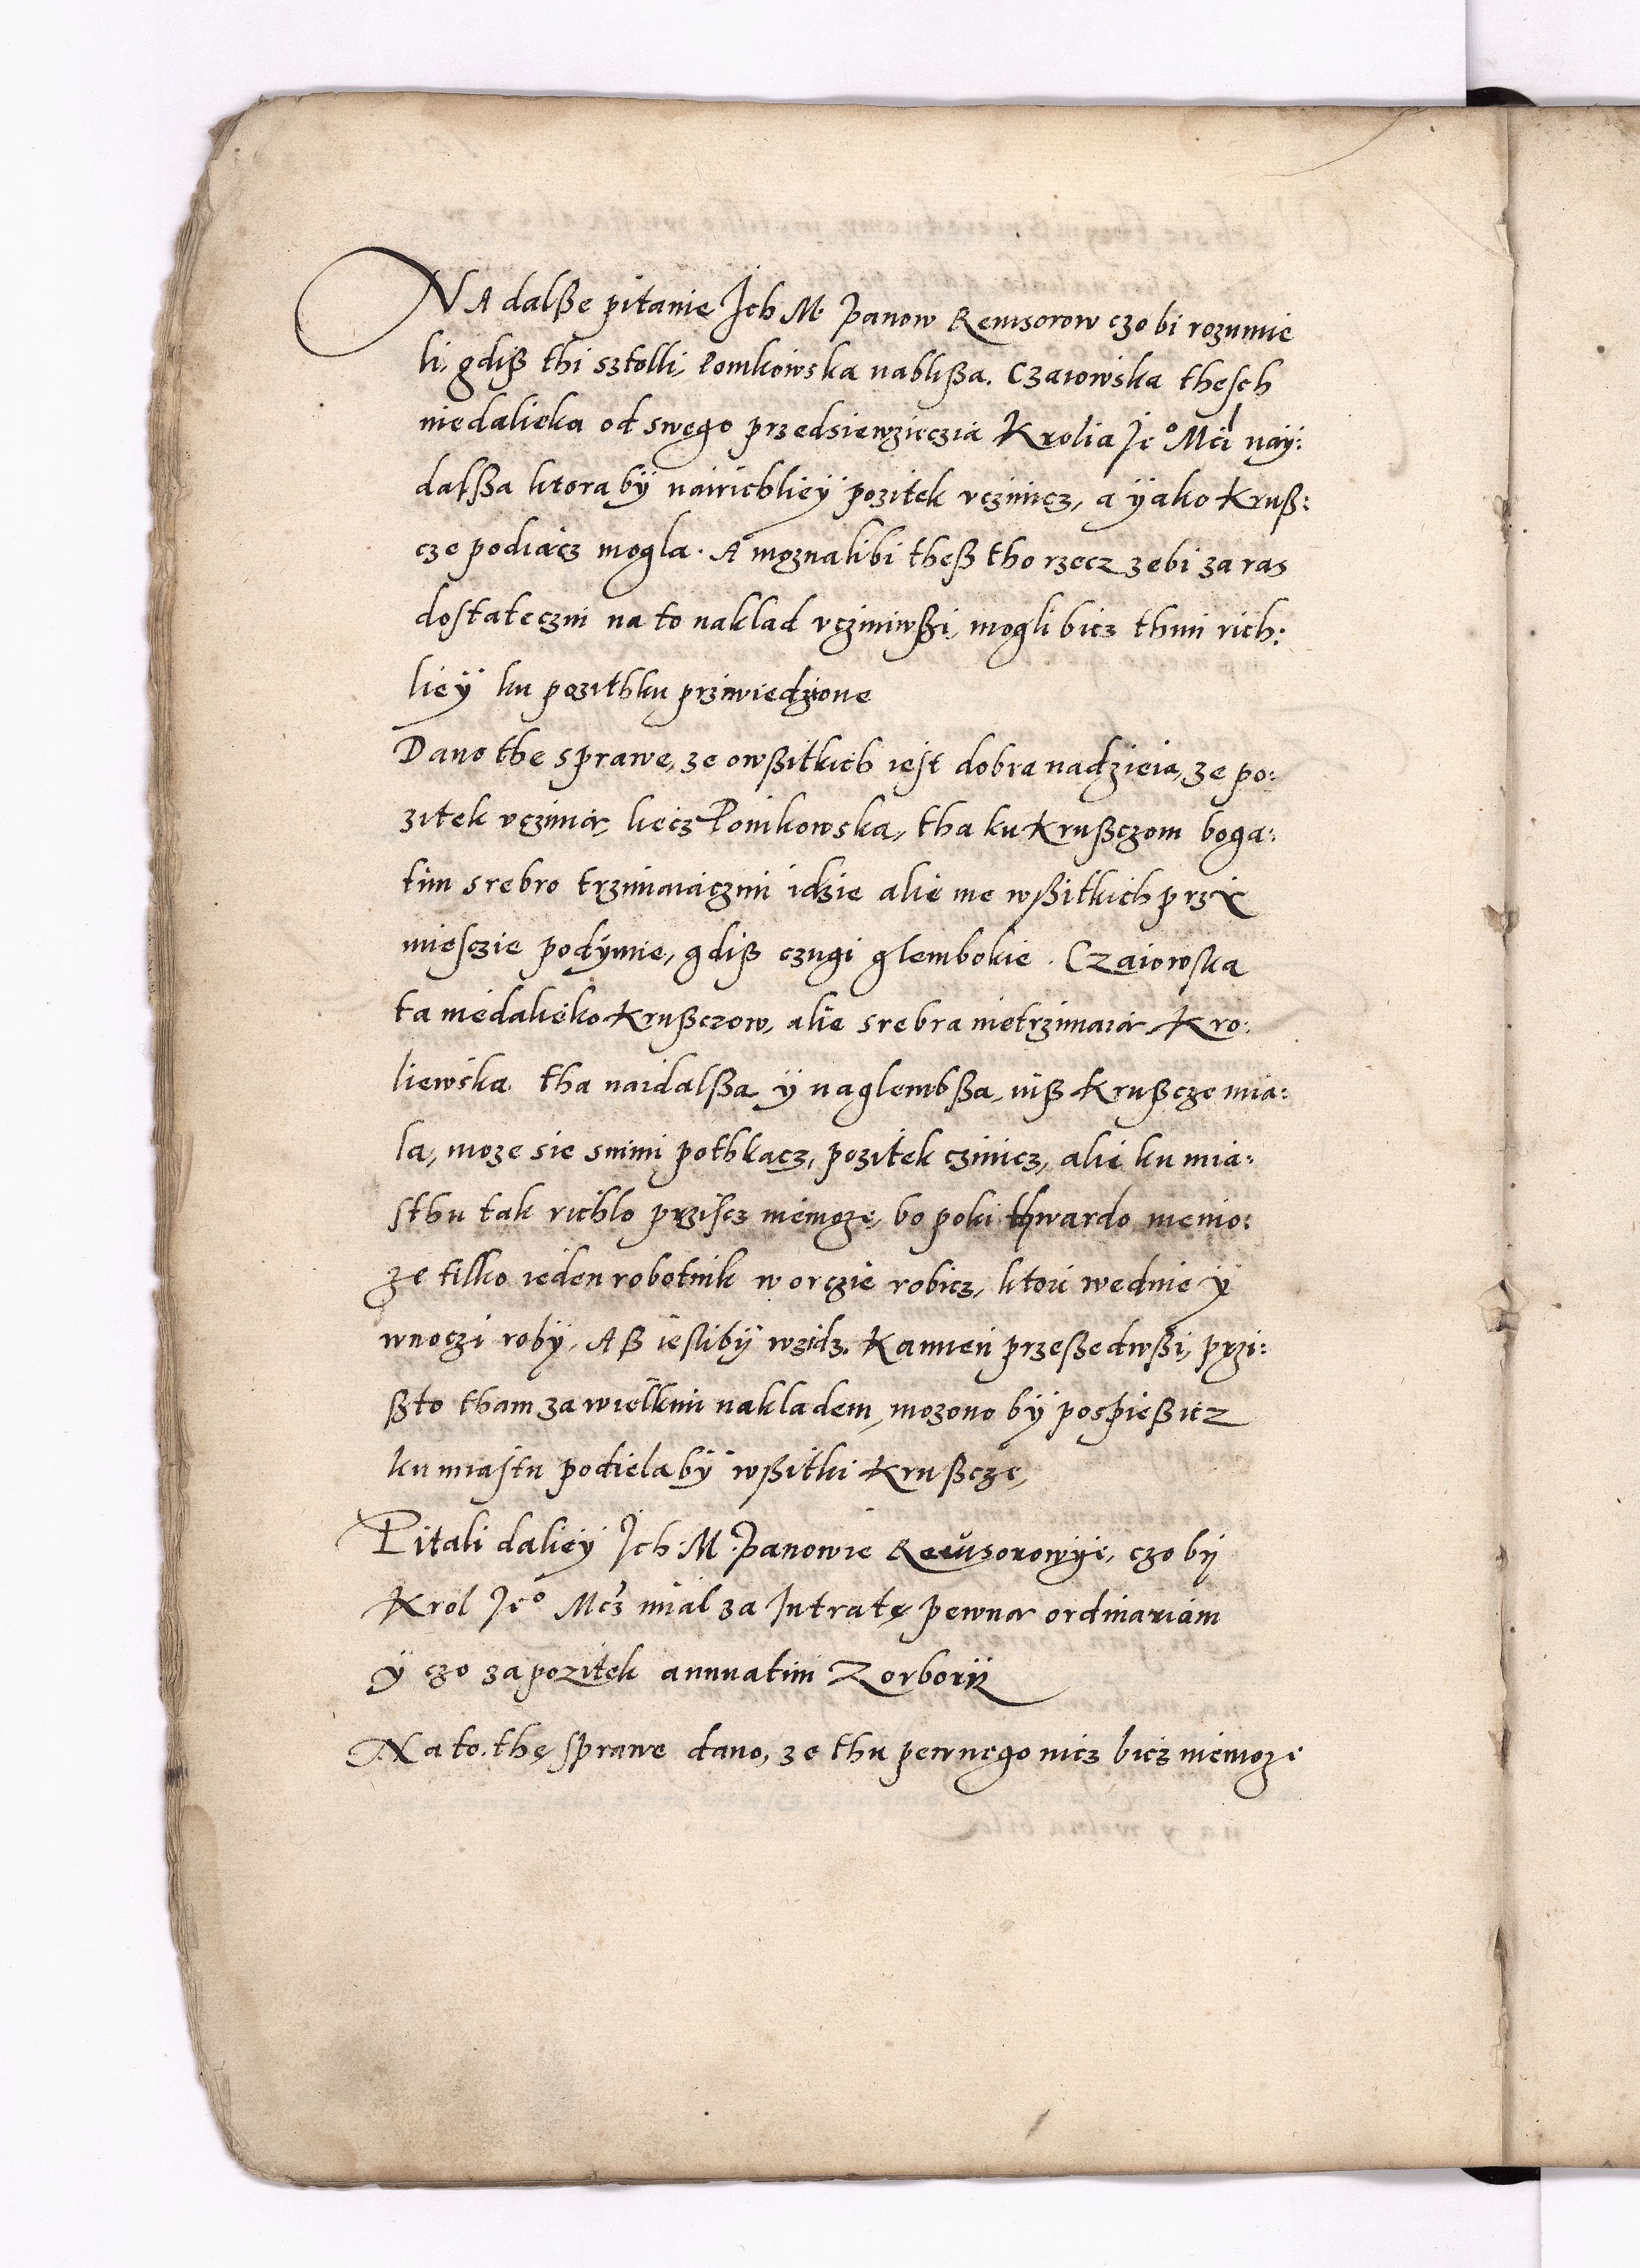 NA dalße pitanie Ich M. Panow Rewisorow czo bi rozumie
li, gdiß thi sztolli, Ponikowska nablißa. Czaiowska thesch
niedalieka od swego przedsiewzieczia Krolia Je° Mći nay:
dalßa ktora bÿ nairichliey pozitek vczinicz, a ÿako Kruß:
cze podiacz mogla. A moznalibi theß tho rzecz zebi zaras
dostateczni na to naklad vcziniwßi, mogli bicz thim rich:
liey ku pozithku prziwiedzione
Dano the sprawe, ze owßitkich iest dobra nadzieia, ze po:
zitek vczinią, liecz Ponikowska, tha ku Krußczom boga:
tim srebro trzimaiączmi idzie alie nie wßitkich prži
miesczie podÿmie, gdiß czugi glembokie. Czaiowska
ta niedalieko Krußczow, alie srebra nietrzimaią Kro:
liewska tha naidalßa ÿ naglembßa, niß Krußcze mia:
la, moze sie snimi pothkacz, pozitek czinicz, alie ku mia:
sthu tak richlo prziscz niemoze, bo poki thwardo niemo:
ze tilko ieden robotnik w orczie robicz, ktori wednie ÿ
wnoczi roby, Aß iesliby wzidz. Kamien przeßedwßi, przi:
ßto tham za wielkim nakladem, mozono bÿ pospießicz
ku miastu podielabÿ wßitki Krußcze,
Pitali daliey Ich: M: Panowie Rewisorowÿe, czo bÿ
Krol Je° Mcz mial za Intratę pewną ordinariam
ÿ czo za pozitek annuatim Zorborÿ
Na to thę sprawe dano, ze thu pewnego nicz bicz niemoze